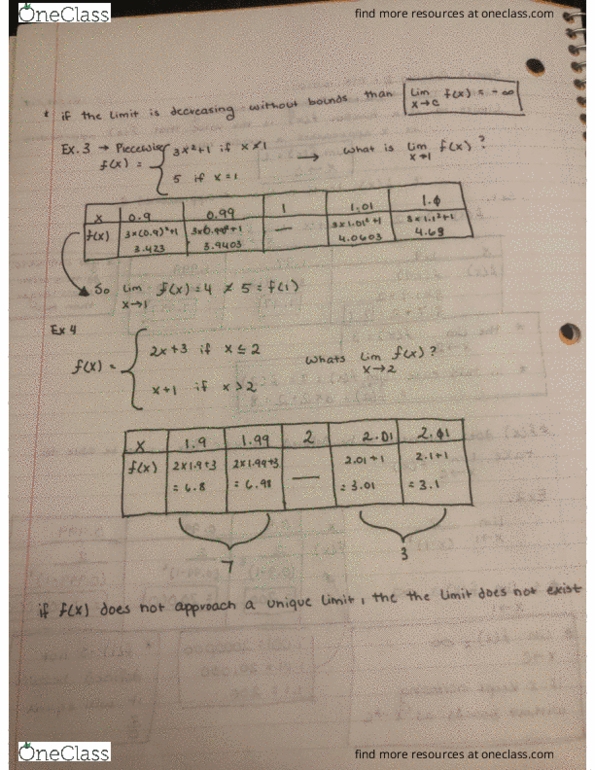 OneClass find more resources at oneclass.com
* if the limit is decreasing without bounds than lim f(x) = -∞
x→c
Ex.3 → Piecewise
f(x) = { 3x²+1 if x≠1 → What is lim f(x)?
x→1
5 if x=1
x 0.9 0.99 1 1.01 1.1
f(x) 3x(0.9)²+1 3x0.99²+1 — 3x1.01²+1 3x1.1²+1
3.423 3.9403 4.0603 4.63
So lim f(x) = 4 ≠ 5 = f(1)
x→1
Ex 4
f(x) = { 2x+3 if x ≤ 2 Whats lim f(x)?
x→2
x+1 if x>2
x 1.9 1.99 2 2.01 2.1
f(x) 2x1.9+3 2x1.99+3 — 2.01+1 2.1+1
= 6.8 = 6.98 = 3.01 = 3.1
7 3
if f(x) does not approach a unique limit, the the limit does not exist
OneClass find more resources at oneclass.com